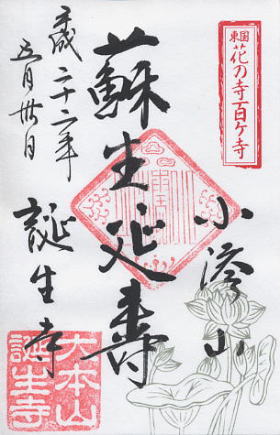 東国
花の寺百ケ寺
小湊山
蘇生延寿
平成二十二年
五月卅日
誕生寺
大本山
誕生寺